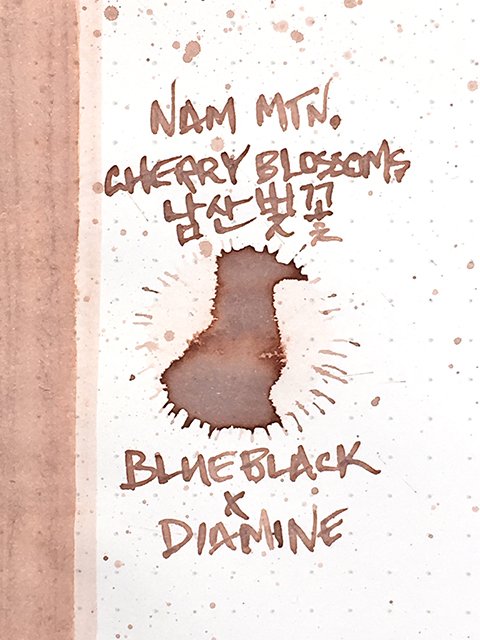 NAM MTN.
CHERRY BLOSSOMS
남산벚꽃
BLUEBLACK
x
DIAMINE